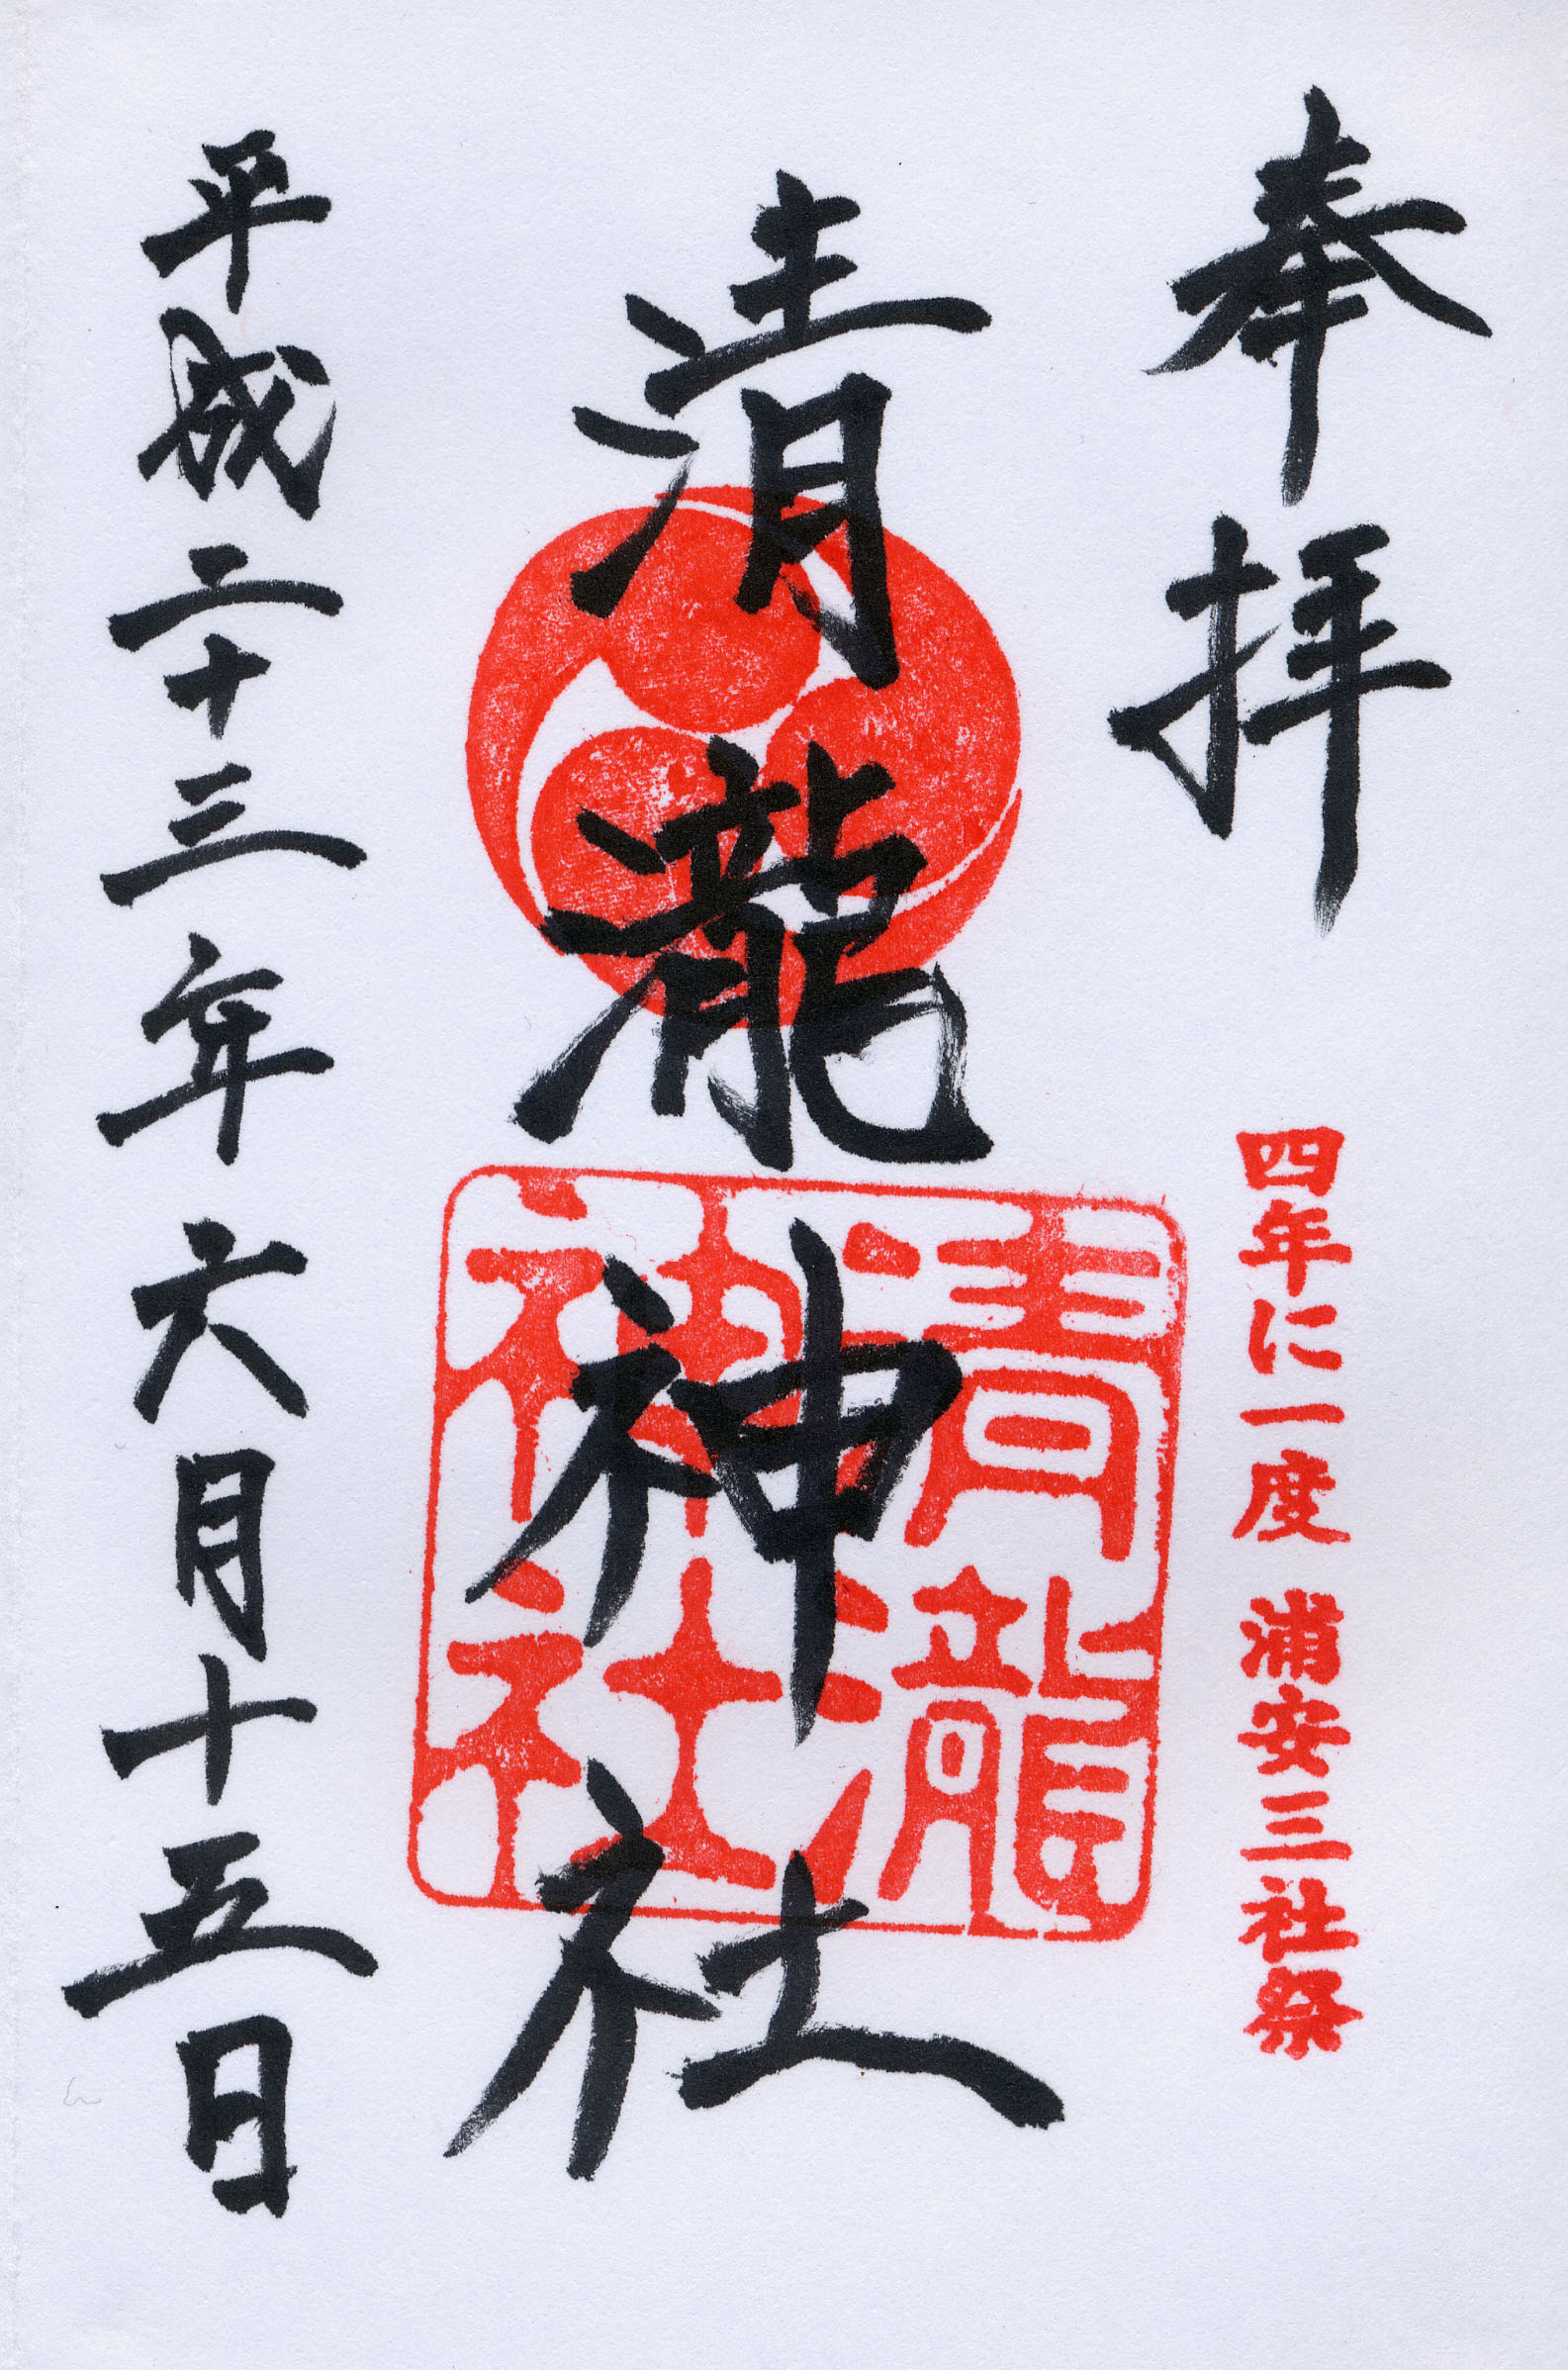 奉拝
四年に一度 浦安三社祭
清瀧神社
清瀧
神社
平成二十三年六月十五日